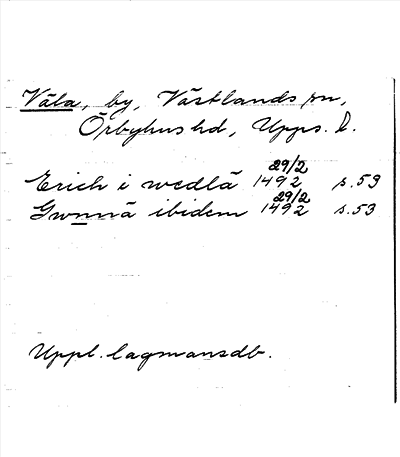 Väla, by, Västlands sn,
Örbyhus hd, Upps. l.
29/2
Erich i wedlä 1492 s. 53
29/2
Gwnnä ibidem 1492 s. 53
Uppl. lagmansdb.